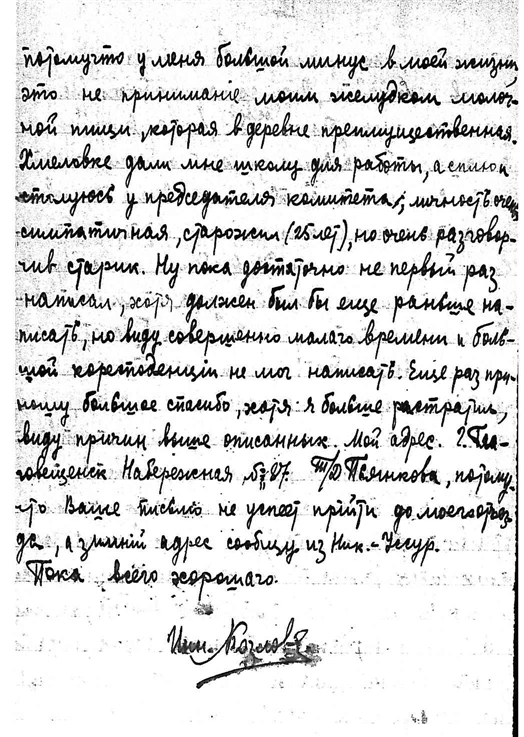 потомучто у меня большой минус в моей жизни
это не приниманіе моим желудком молоч-
ной пищи, которая в деревне преимущественная.
Хмеловке дали мне школу для работы, а сплю и
столуюсь у председателя комитета; личность очень
симпатичная, старожил (25 лет), но очень разговор-
чив старик. Ну пока достаточно не первый раз
написал, хотя должен был бы еще раньше на-
писать, но виду совершенно малаго времени и боль-
шой кореспоненціи не мог написать. Еще раз при-
ношу большое спасибо, хотя я больше растратил,
виду причин выше описанных. Мой адрес. г. Бла-
говещенск Набережная № 87. Т/Д Пьянкова, потому-
что Ваше письмо не успеет прійти до моего отъез-
да, а зимній адрес сообщу из Ник.-Уссур.
Пока всего хорошаго.
Инн. Козлов